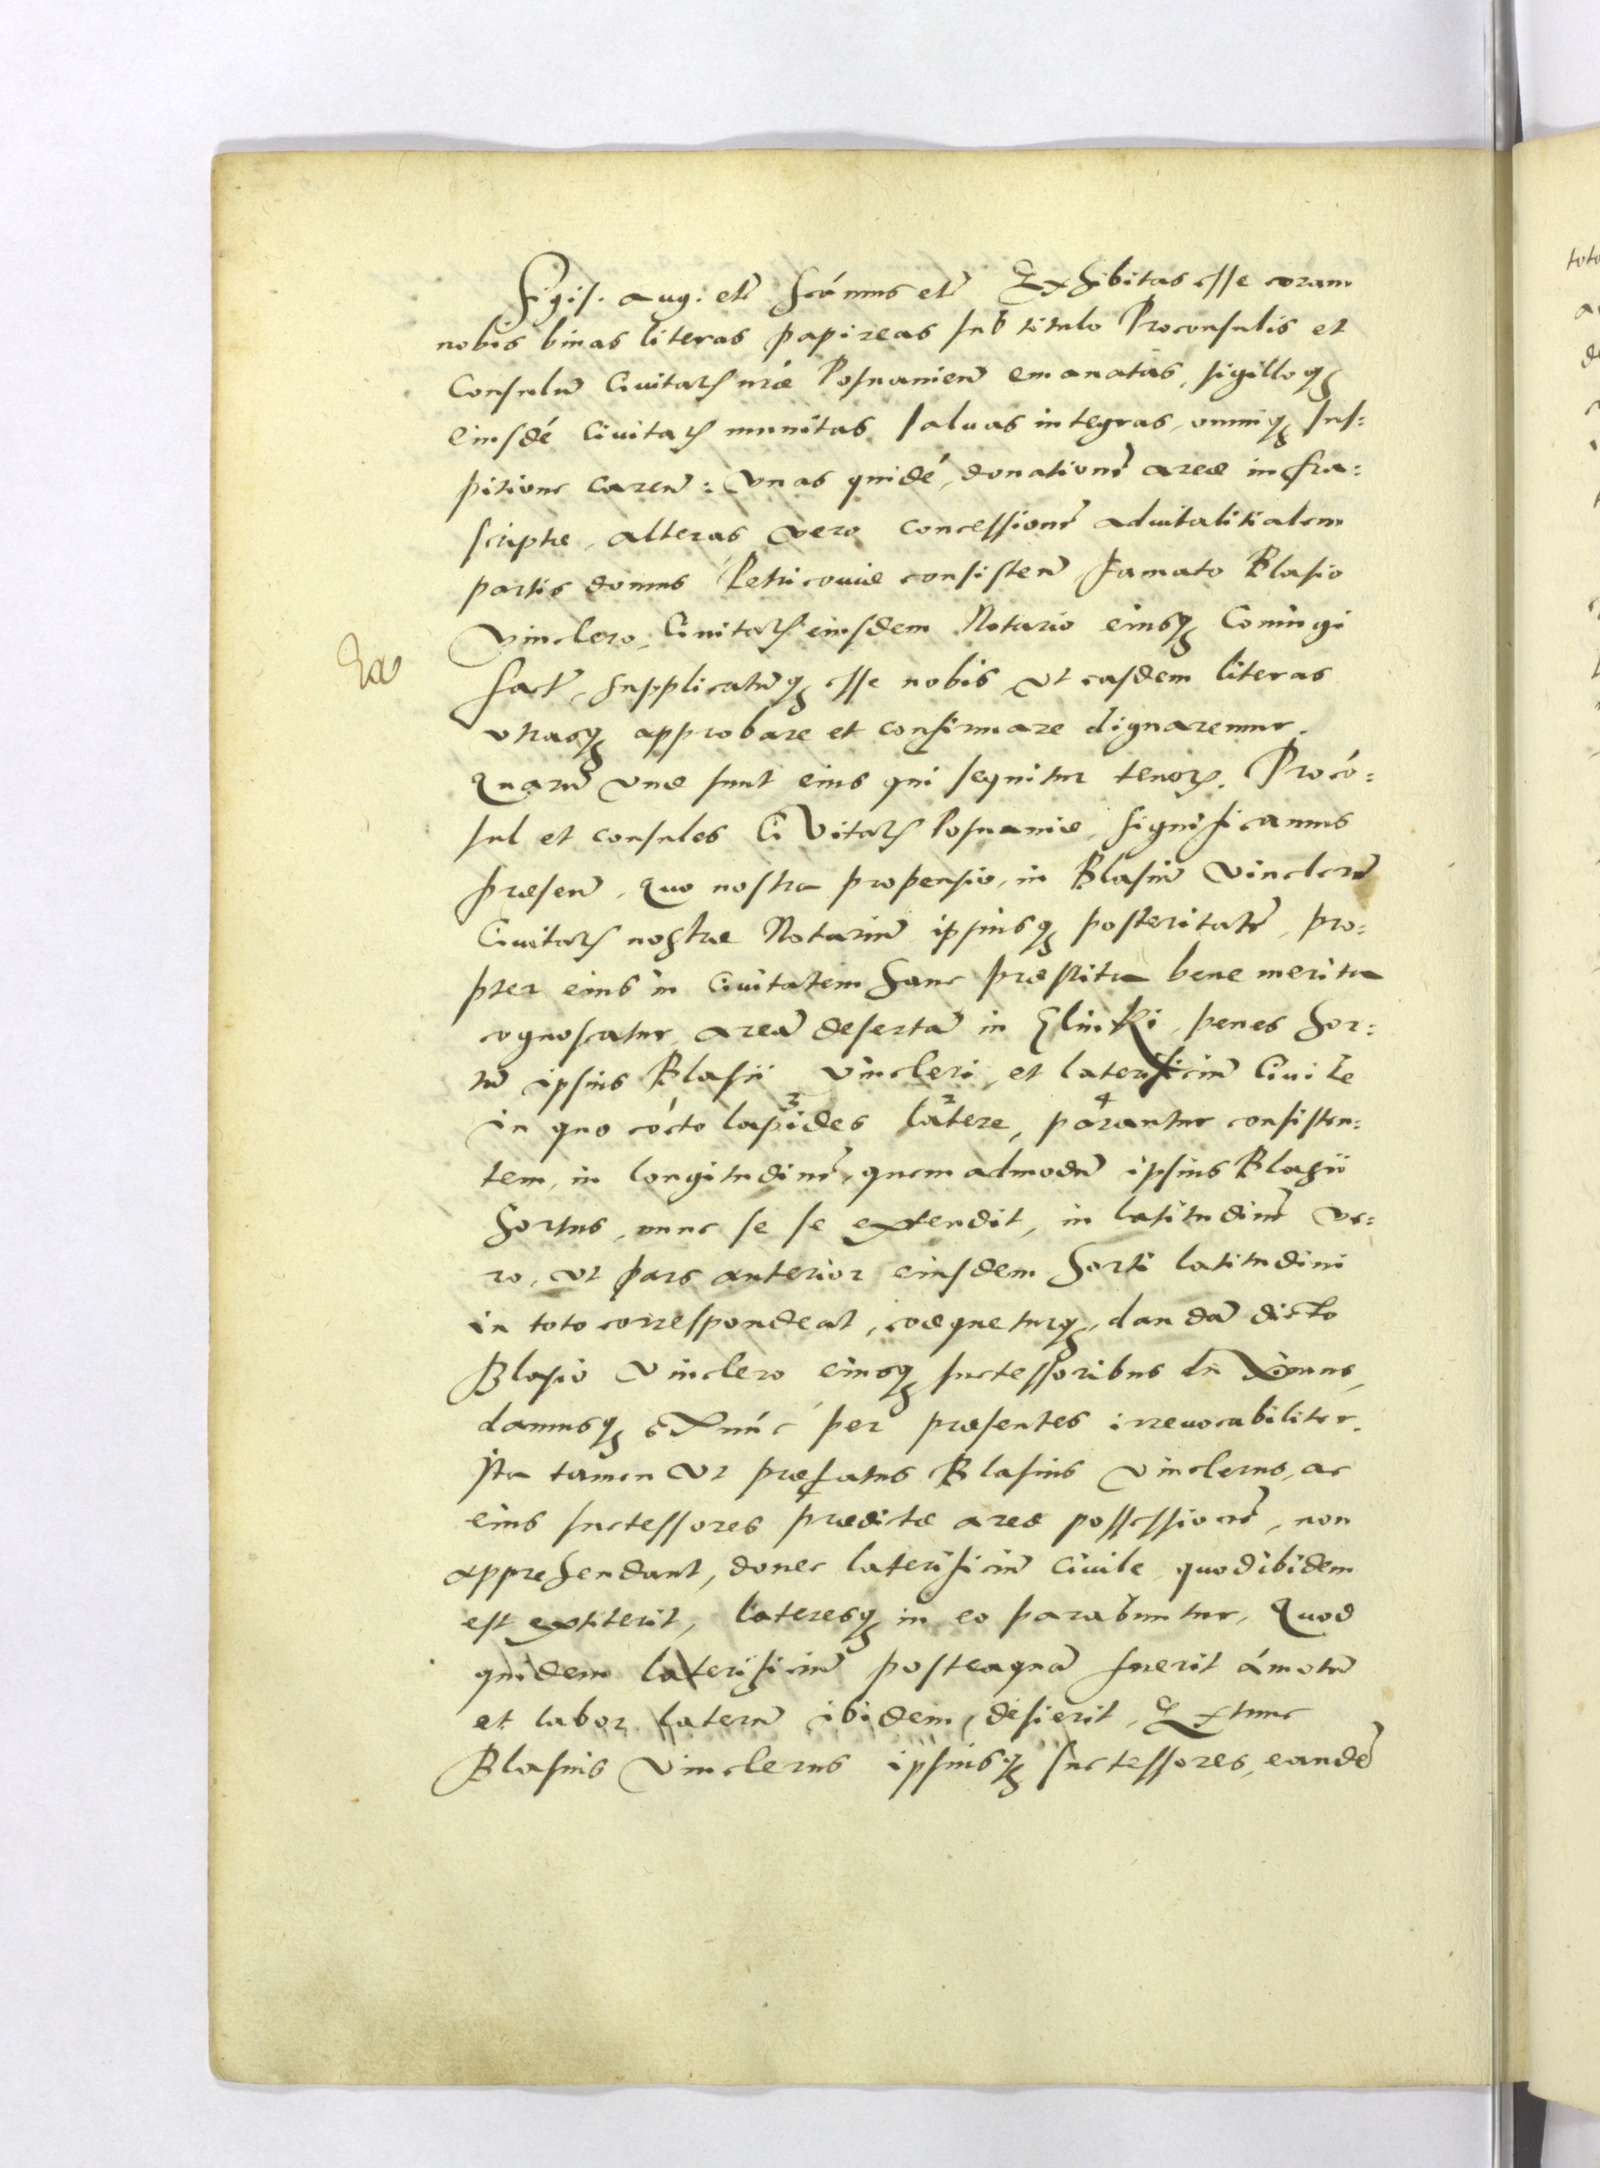 Sigis. Aug. etc̃ Scámus etc̃ Exhibitas esse coram
nobis binas literas papireas sub titulo Proconsulis et
Consulũ Civitatis nr̃ae Posnanien̄ emanatas, sigilloq3
eiusdé Civitatis munitas salvas integras, omniq3 sus=
pitione caren̄: Unas quidé, donationẽ areae infra=
scriptae, alteras vero concessionẽ advitalitialem
partis domus Petricoviae consisten̄ Famato Blasio
Vinclero, Civitatis eiusdem Notario eiusq3 Coniugi
fact̃, supplicatũq3 esse nobis ut easdem literas
utrasq3 approbare et confirmare dignaremur.
Quarũ unae sunt eius qui sequitur tenoris. Procó=
sul et consules Civitatis Posnaniae, significamus
praesen̄. Quo nostra propensio, in Blasiũ Vinclerũ
Civitatis nostrae Notariũ ipsiusq3 posteritatẽ, pro=
pter eius in Civitatem hanc praestita bene merita
cognoscatur, areã desertã in Glinki, penes hor=
tũ ipsius Blasii Vincleri, et laterificiũ Civile
in quo cócto lapides 3 latere 2, parantur 4 consisten=
tem, in longitudinẽ, quemadmodũ ipsius Blasii
hortus, nunc se se extendit, in latitudinẽ ve=
ro, ut pars anterior eiusdem horti latitudini
in toto correspondeat, coaequeturq3, dandã dicto
Blasio Vinclero eiusq3 successoribus duximus,
damusq3 exnúc per praesentes irrevocabiliter.
Ita tamen ut praefatus Blasius Vinclerus, ac
eius successores praedictae areae possessionẽ, non
apprehendant, donec laterificiũ Civile quod ibidem
est extiterit, lateresq3 in eo parabuntur, Quod
quidem laterificiũ posteaquã fuerit ámotũ
et labor laterũ ibidem, desierit, Extunc
Blasius Vinclerus ipsiusq3 successores, eandẽ